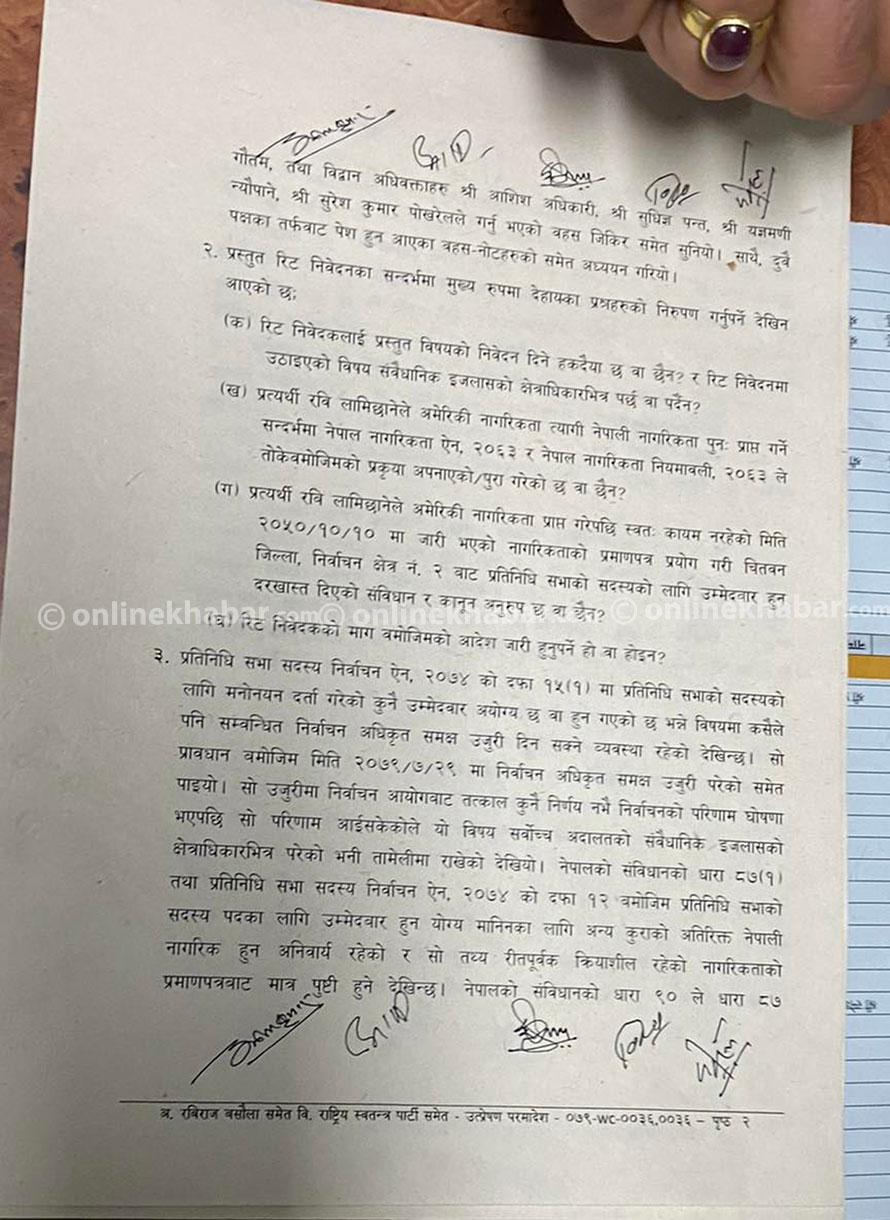 गौतम, तथा विद्वान अधिवक्ताहरु श्री आशिश अधिकारी, श्री सुधिज्ञ पन्त, श्री यज्ञमणी
न्यौपाने, श्री सुरेश कुमार पोखरेलले गर्नु भएको वहस जिकिर समेत सुनियो। साथै, दुवै
पक्षका तर्फवाट पेश हुन आएका वहस-नोटहरुको समेत अध्ययन गरियो।
२. प्रस्तुत रिट निवेदनका सन्दर्भमा मुख्य रुपमा देहायका प्रश्नहरुको निरुपण गर्नुपर्ने देखिन
आएको छः
(क) रिट निवेदकलाई प्रस्तुत विषयको निवेदन दिने हकदैया छ वा छैन? र रिट निवेदनमा
उठाइएको विषय संवैधानिक इजलासको क्षेत्राधिकारभित्र पर्छ वा पर्दैन?
(ख) प्रत्यर्थी रवि लामिछानेले अमेरिकी नागरिकता त्यागी नेपाली नागरिकता पुनः प्राप्त गर्ने
सन्दर्भमा नेपाल नागरिकता ऐन, २०६३ र नेपाल नागरिकता नियमावली, २०६३ ले
तोकेवमोजिमको प्रकृया अपनाएको/पुरा गरेको छ वा छैन?
(ग) प्रत्यर्थी रवि लामिछानेले अमेरिकी नागरिकता प्राप्त गरेपछि स्वतः कायम नरहेको मिति
२०५०/१०/१० मा जारी भएको नागरिकताको प्रमाणपत्र प्रयोग गरी चितवन
जिल्ला, निर्वाचन क्षेत्र नं. २ वाट प्रतिनिधि सभाको सदस्यको लागि उम्मेदवार हुन
दरखास्त दिएको संविधान र कानून अनुरुप छ वा छैन?
© onlinekhabar.com © onlinekhabar.com © onlinekhabar.com
(घ) रिट निवेदकको माग वमोजिमको आदेश जारी हुनुपर्ने हो वा होइन?
३. प्रतिनिधि सभा सदस्य निर्वाचन ऐन, २०७४ को दफा १५(१) मा प्रतिनिधि सभाको सदस्यको
लागि मनोनयन दर्ता गरेको कुनै उम्मेदवार अयोग्य छ वा हुन गएको छ भन्ने विषयमा कसैले
पनि सम्वन्धित निर्वाचन अधिकृत समक्ष उजुरी दिन सक्ने व्यवस्था रहेको देखिन्छ। सो
प्रावधान वमोजिम मिति २०७९/७/२९ मा निर्वाचन अधिकृत समक्ष उजुरी परेको समेत
पाइयो। सो उजुरीमा निर्वाचन आयोगवाट तत्काल कुनै निर्णय नभै निर्वाचनको परिणाम घोषणा
भएपछि सो परिणाम आईसकेकोले यो विषय सर्वोच्च अदालतको संवैधानिक इजलासको
क्षेत्राधिकारभित्र परेको भनी तामेलीमा राखेको देखियो। नेपालको संविधानको धारा ८७(१)
तथा प्रतिनिधि सभा सदस्य निर्वाचन ऐन, २०७४ को दफा १२ वमोजिम प्रतिनिधि सभाको
सदस्य पदका लागि उम्मेदवार हुन योग्य मानिनका लागि अन्य कुराको अतिरिक्त नेपाली
नागरिक हुन अनिवार्य रहेको र सो तथ्य रीतपूर्वक क्रियाशील रहेको नागरिकताको
प्रमाणपत्रवाट मात्र पुष्टी हुने देखिन्छ। नेपालको संविधानको धारा ९० ले धारा ८७
अ. रविराज वसौला समेत वि. राष्ट्रिय स्वतन्त्र पार्टी समेत - उत्प्रेषण परमादेश - ०७९-WC-००३६,००३६ – पृष्ठ २